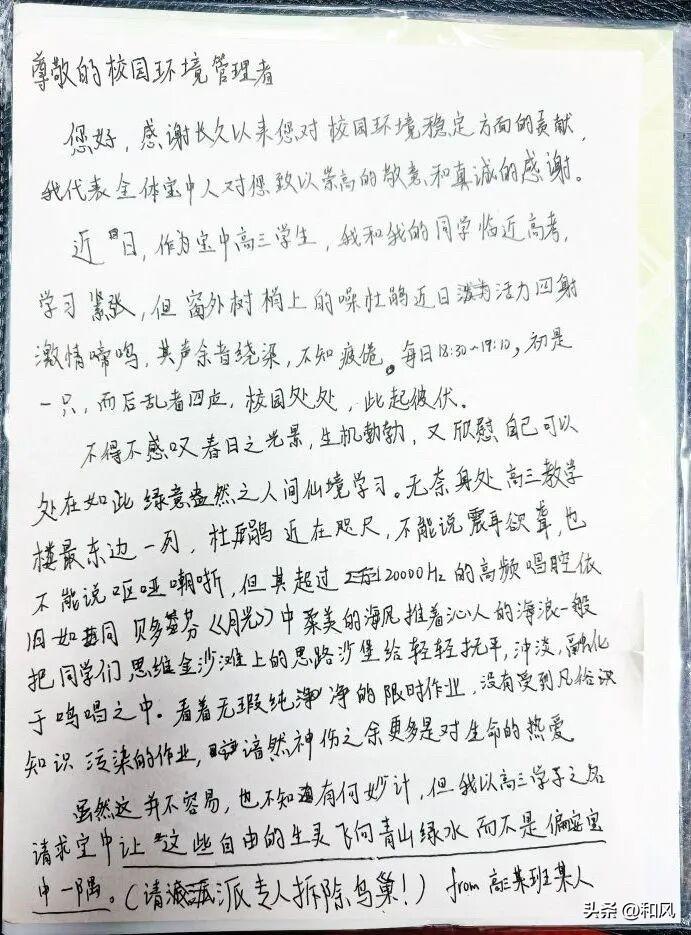 尊敬的校园环境管理者
您好，感谢长久以来您对校园环境稳定方面的贡献，
我代表全体宝中人对您致以崇高的敬意和真诚的感谢。
近日，作为宝中高三学生，我和我的同学临近高考，
学习紧张，但窗外树梢上的噪杜鹃近日活力四射
激情啼鸣，其声余音绕梁，不知疲倦。每日18:30~19:10，初是
一只，而后乱者四应，校园处处，此起彼伏。
不得不感叹春日之光景，生机勃勃，又欣慰自己可以
处在如此绿意盎然之人间仙境学习。无奈身处高三教学
楼最东边一列，杜鹃近在咫尺，不能说震耳欲聋，也
不能说呕哑嘲哳，但其超过20000Hz的高频唱腔依
旧如同贝多芬《月光》中柔美的海风推着沁人的海浪一般
把同学们思维金沙滩上的思路沙堡给轻轻抚平，冲淡，融化
于鸣唱之中。看着无瑕纯净的限时作业，没有受到凡俗识
知识污染的作业，谙然神伤之余更多是对生命的热爱
虽然这并不容易，也不知有何妙计，但我以高三学子之名
请求宝中让这些自由的生灵飞向青山绿水而不是偏安宝
中一隅。（请派专人拆除鸟巢！）from 高三某班某人
头条 @和风